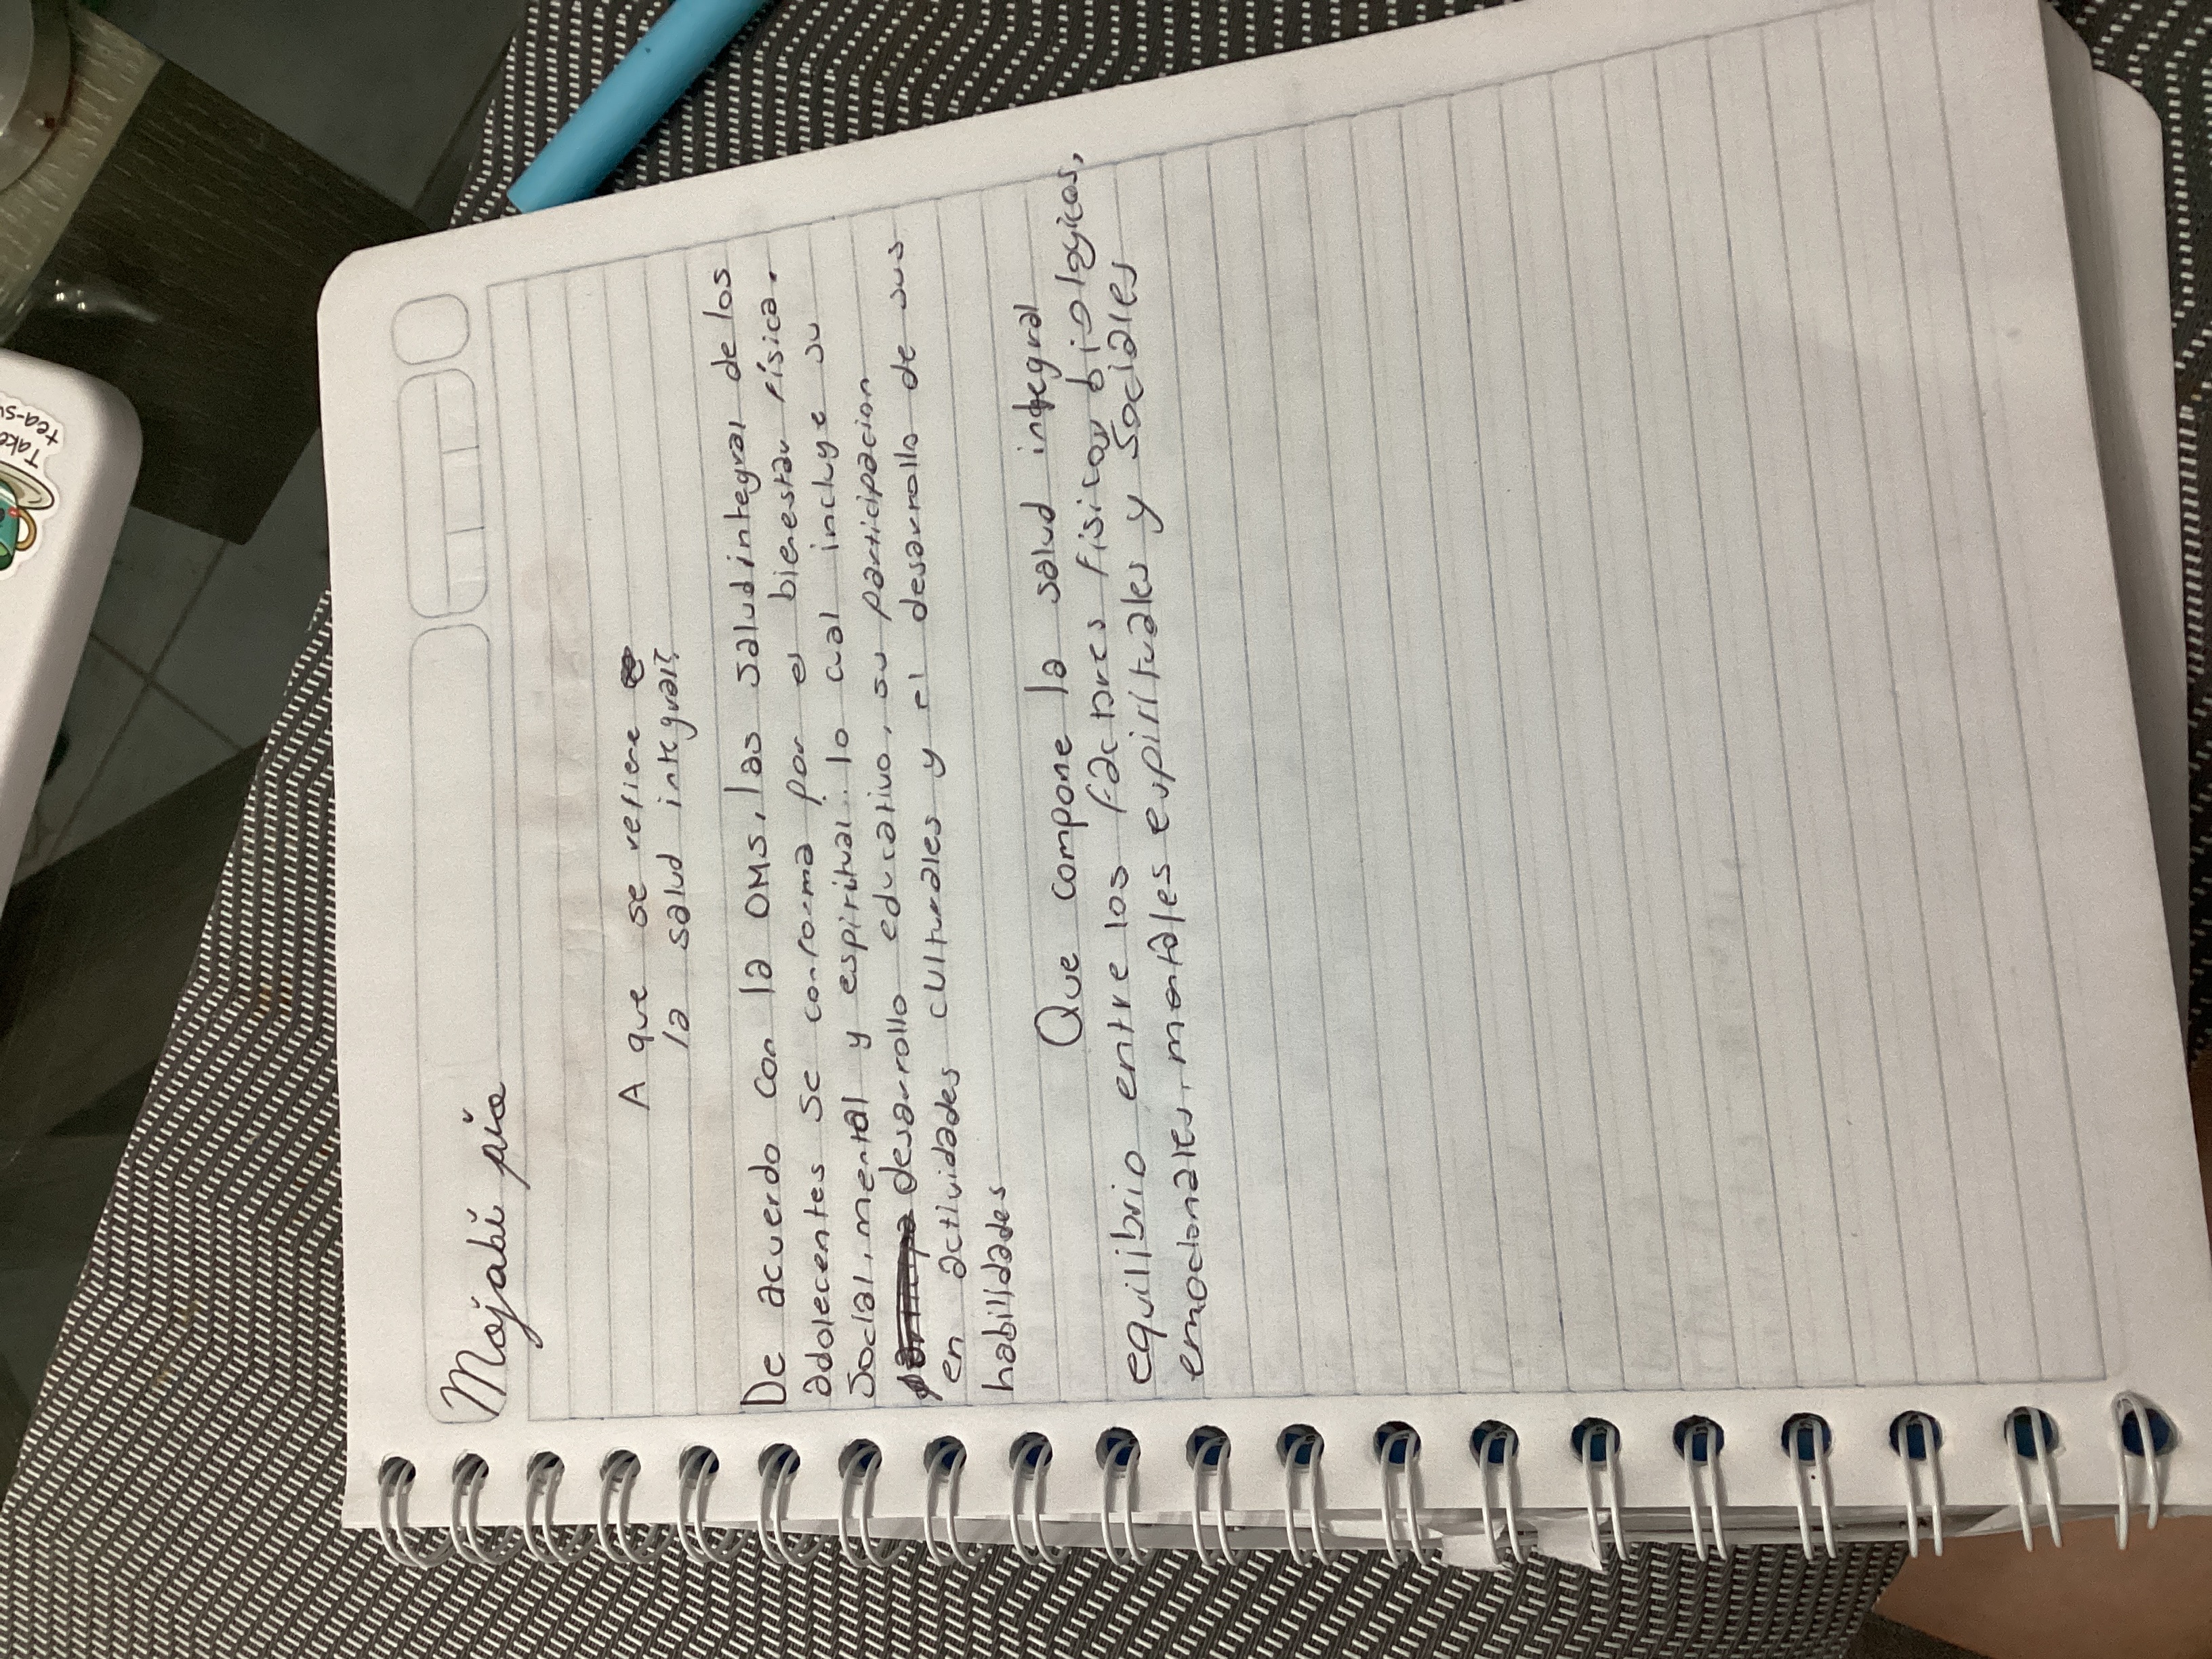 A que se refiere
la salud integral?
De acuerdo con la OMS, las salud integral de los
adolecentes se conforma por el bienestar física.
Social, mental y espiritual.. lo cual incluye su
desarrollo educativo, su participacion
en actividades culturales y el desarrollo de sus
habilidades
Que compone la salud integral
equilibrio entre los factores fisicos biologicos,
emocionales, mentales espirituales y Sociales
Take
tea-s